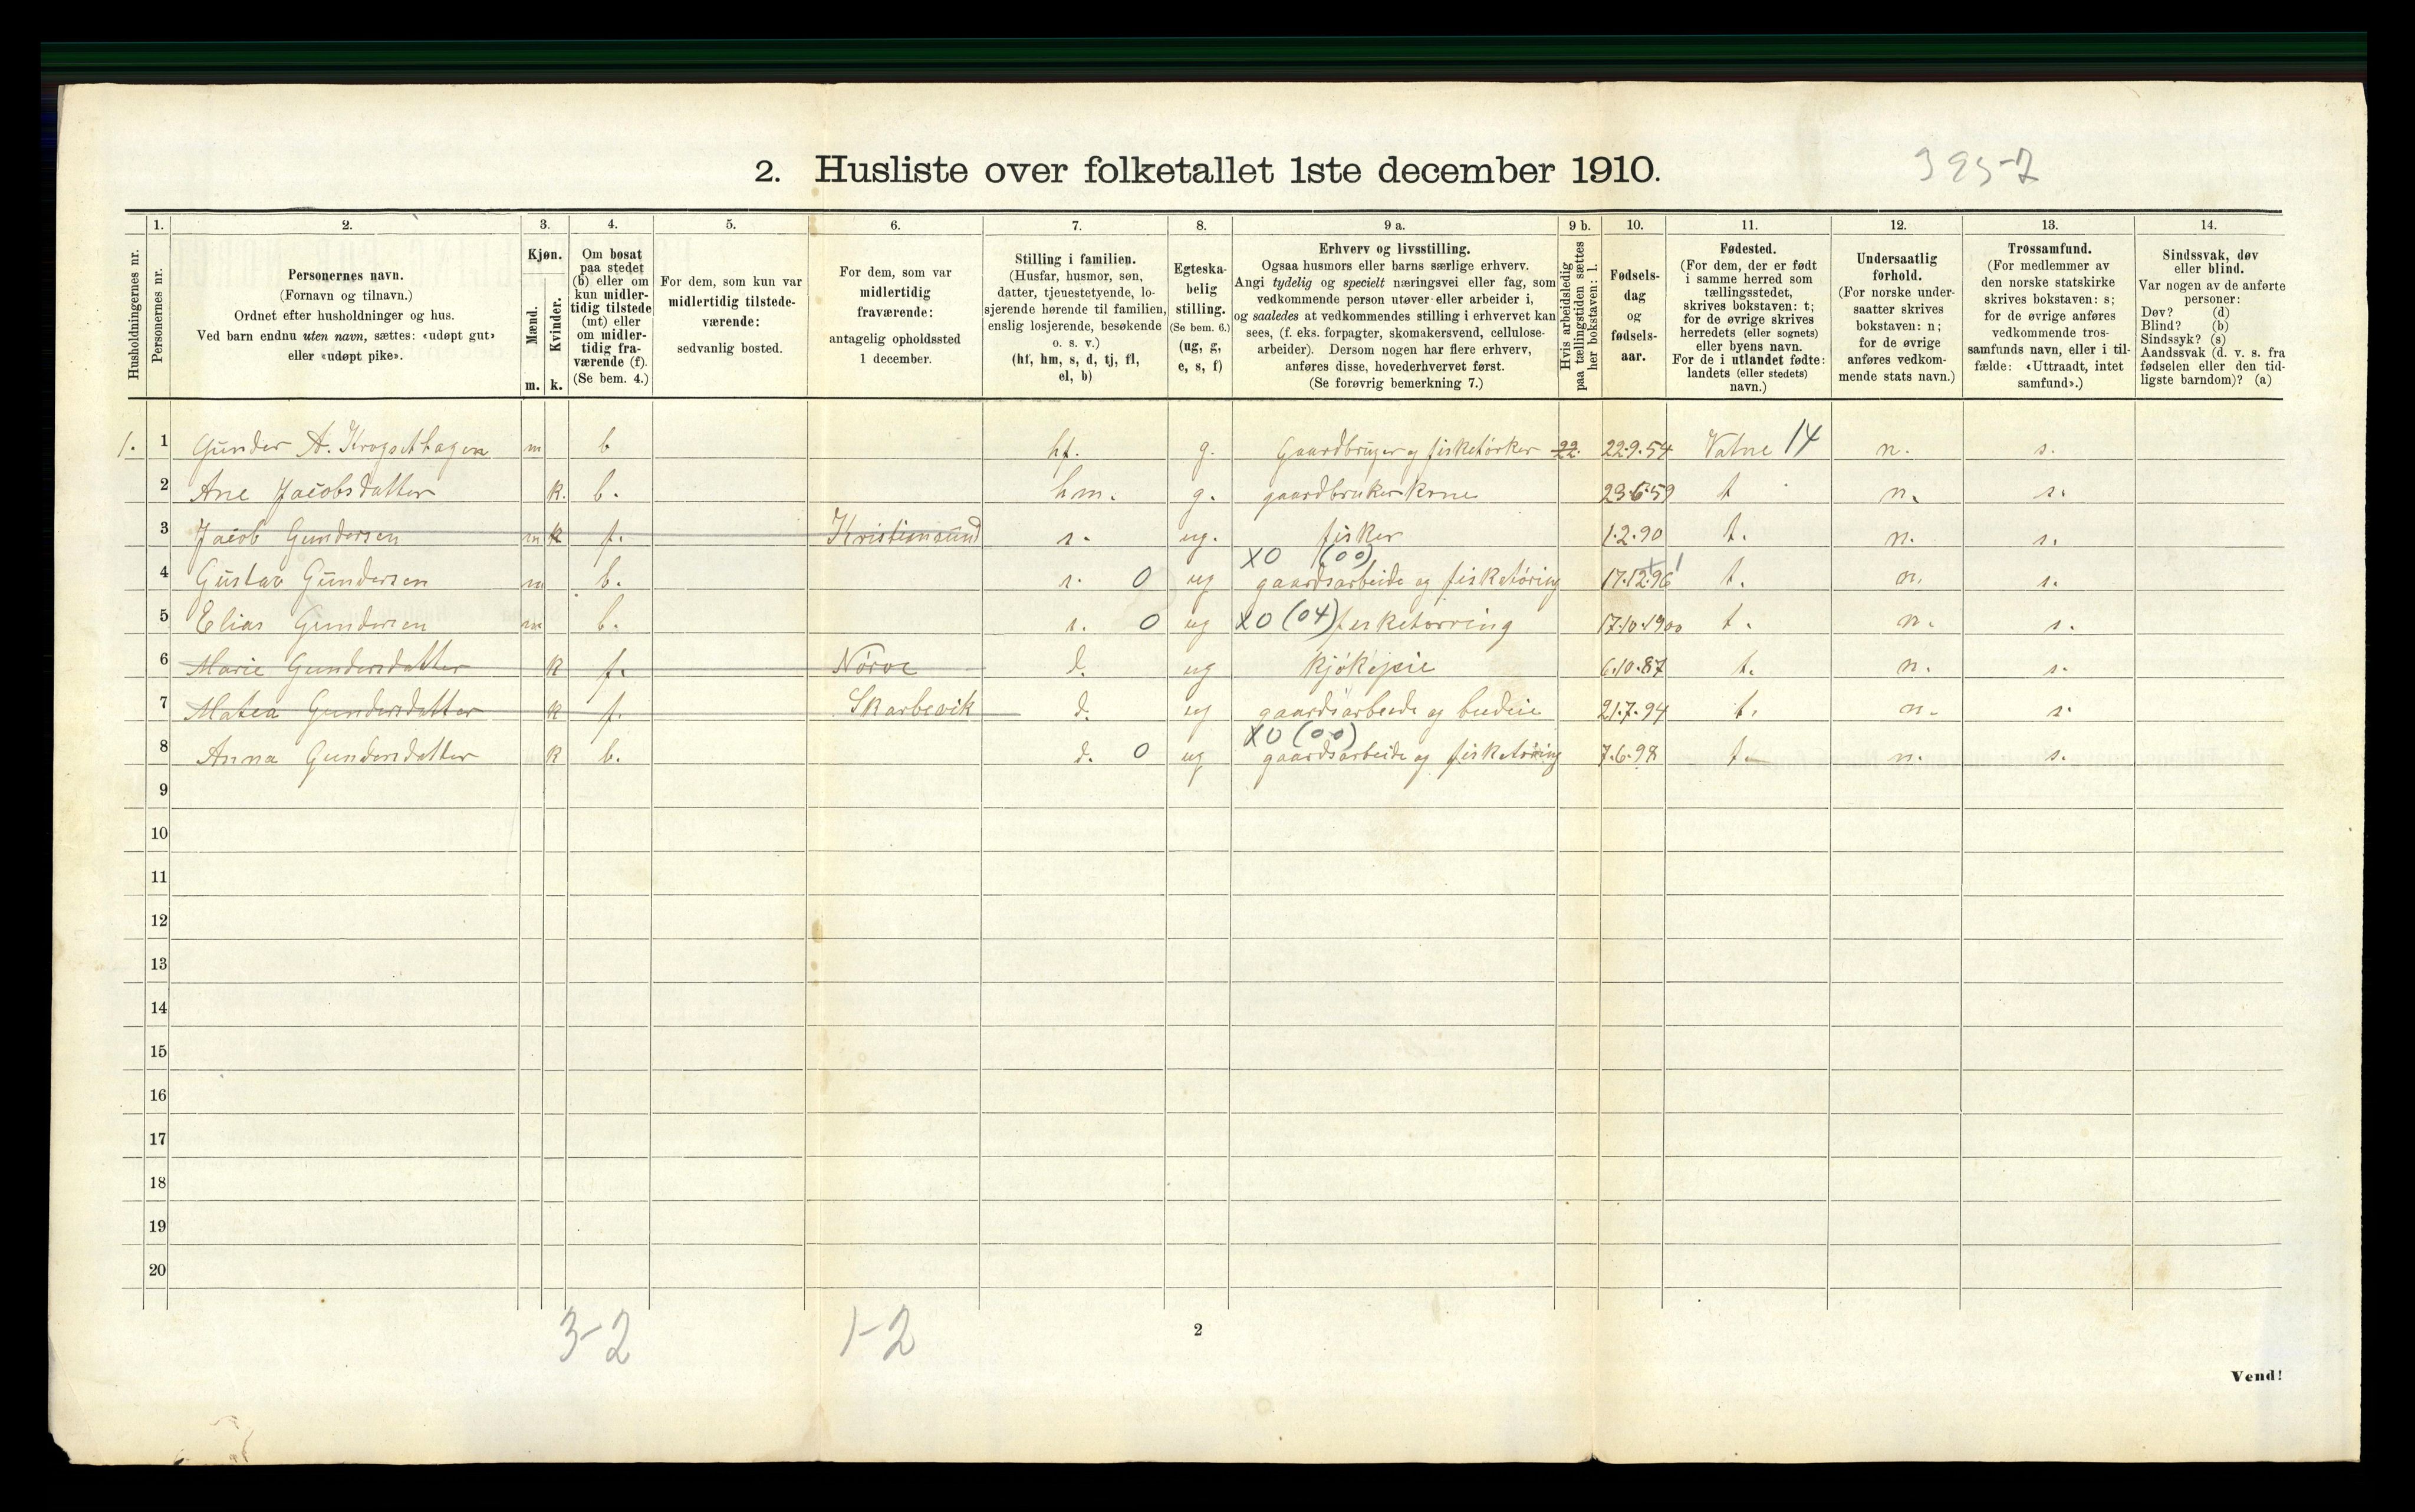 2. Husliste over folketallet 1ste december 1910.
395-2
Husholdningernes nr.
1.
Personernes nr.
2.
Personernes navn.
(Fornavn og tilnavn.)
Ordnet efter husholdninger og hus.
Ved barn endnu uten navn, sættes: «udøpt gut»
eller «udøpt pike».
3.
Kjøn.
Mænd.
Kvinder.
m. k.
4.
Om bosat
paa stedet
(b) eller om
kun midler-
tidig tilstede
(mt) eller
om midler-
tidig fra-
værende (f).
(Se bem. 4.)
5.
For dem, som kun var
midlertidig tilstede-
værende:
sedvanlig bosted.
6.
For dem, som var
midlertidig
fraværende:
antagelig opholdssted
1 december.
7.
Stilling i familien.
(Husfar, husmor, søn,
datter, tjenestetyende, lo-
sjerende hørende til familien,
enslig losjerende, besøkende
o. s. v.)
(hf, hm, s, d, tj, fl,
el, b)
8.
Egteska-
belig
stilling.
(Se bem. 6.)
(ug, g,
e, s, f)
9 a.
Erhverv og livsstilling.
Ogsaa husmors eller barns særlige erhverv.
Angi tydelig og specielt næringsvei eller fag, som
vedkommende person utøver eller arbeider i,
og saaledes at vedkommendes stilling i erhvervet kan
sees, (f. eks. forpagter, skomakersvend, cellulose-
arbeider). Dersom nogen har flere erhverv,
anføres disse, hovederhvervet først.
(Se forøvrig bemerkning 7.)
9 b.
Hvis arbeidsledig
paa tællingstiden sættes
her bokstaven: l.
10.
Fødsels-
dag
og
fødsels-
aar.
11.
Fødested.
(For dem, der er født
i samme herred som
tællingsstedet,
skrives bokstaven: t;
for de øvrige skrives
herredets (eller sognets)
eller byens navn.
For de i utlandet fødte:
landets (eller stedets)
navn.)
12.
Undersaatlig
forhold.
(For norske under-
saatter skrives
bokstaven: n;
for de øvrige
anføres vedkom-
mende stats navn.)
13.
Trossamfund.
(For medlemmer av
den norske statskirke
skrives bokstaven: s;
for de øvrige anføres
vedkommende tros-
samfunds navn, eller i til-
fælde: «Uttraadt, intet
samfund».)
14.
Sindssvak, døv
eller blind.
Var nogen av de anførte
personer:
Døv? (d)
Blind? (b)
Sindssyk? (s)
Aandssvak (d. v. s. fra
fødselen eller den tid-
ligste barndom)? (a)
1. 1 Gunder A. Krogsethagen m b hf. g. Gaardbruger og fisketørker 22. 22.9.54 Vatne 14 n. s.
2 Ane Jacobsdatter k. b. hm. g. gaardbrukerkone 23.6.59 t n. s.
3 Jacob Gundersen m k f. Kristiansund s. ug. fisker 1.2.90 t. n. s.
XO (00)
4 Gustav Gundersen m b. s. 0 ug gaardsarbeide og fisketøring 17.12.96 t. n. s.
5 Elias Gundersen m b. s. 0 ug XO (04) fisketørring 17.10.1900 t. n. s.
6 Marie Gundersdatter k f. Nørve d. ug kjøkepie 6.10.87 t. n. s.
7 Matea Gundersdatter k f. Skarbøvik d. ug gaardsarbeide og budeie 21.7.94 t. n. s.
XO (00)
8 Anna Gundersdatter k b. d. 0 ug gaardsarbeide og fisketøring 7.6.98 t. n. s.
9
10
11
12
13
14
15
16
17
18
19
20
3-2 1-2
2
Vend!